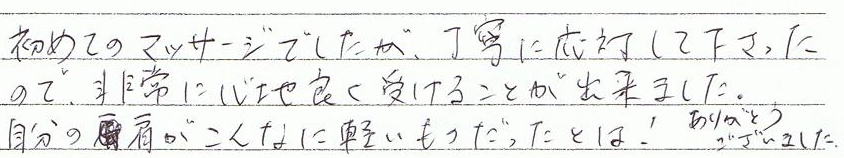 初めてのマッサージでしたが、丁寧に応対して下さった
ので、非常に心地良く受けることが出来ました。
自分の肩がこんなに軽いものだったとは！
ありがとう
ございました。